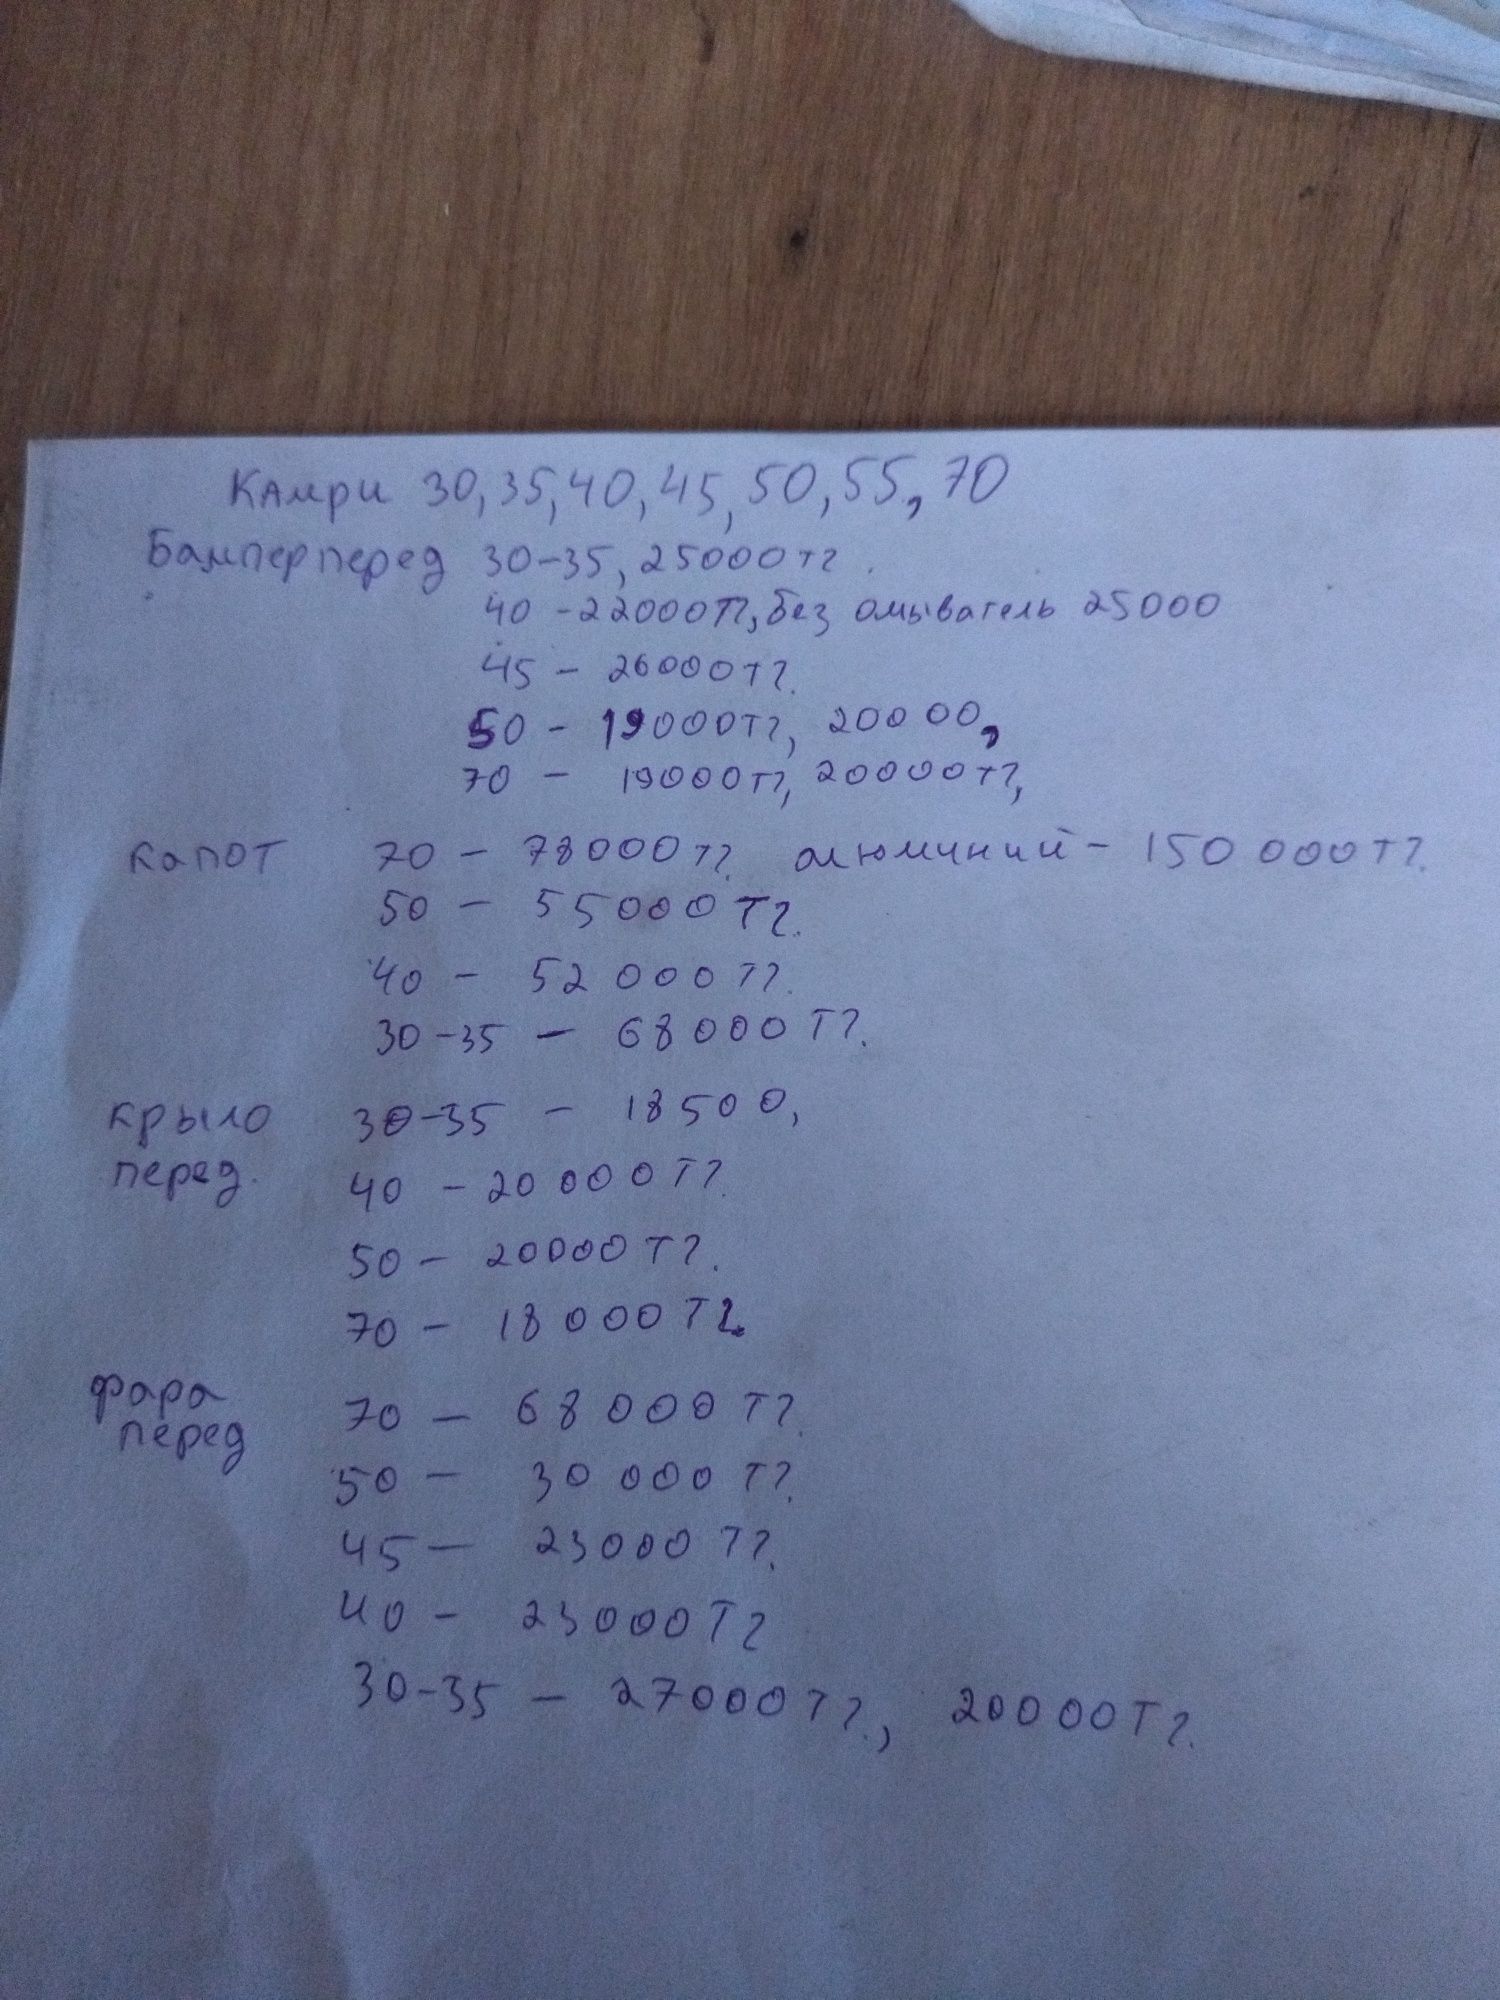 Камри 30, 35, 40, 45, 50, 55, 70
Бампер перед 30-35, 25000 тг.
40 - 22000тг, без омыватель 25000
45 - 26000тг.
50 - 19000тг, 20000,
70 - 19000тг, 20000тг,
капот 70 - 78000тг. алюминий - 150 000тг.
50 - 55000тг.
40 - 52 000тг.
30-35 - 68000тг.
крыло 30-35 - 18500,
перед. 40 - 20 000тг.
50 - 20000тг.
70 - 18 000тг.
фара
перед 70 - 68 000тг.
50 - 30 000тг.
45 - 23000тг.
40 - 23000тг
30-35 - 27000тг., 20000тг.